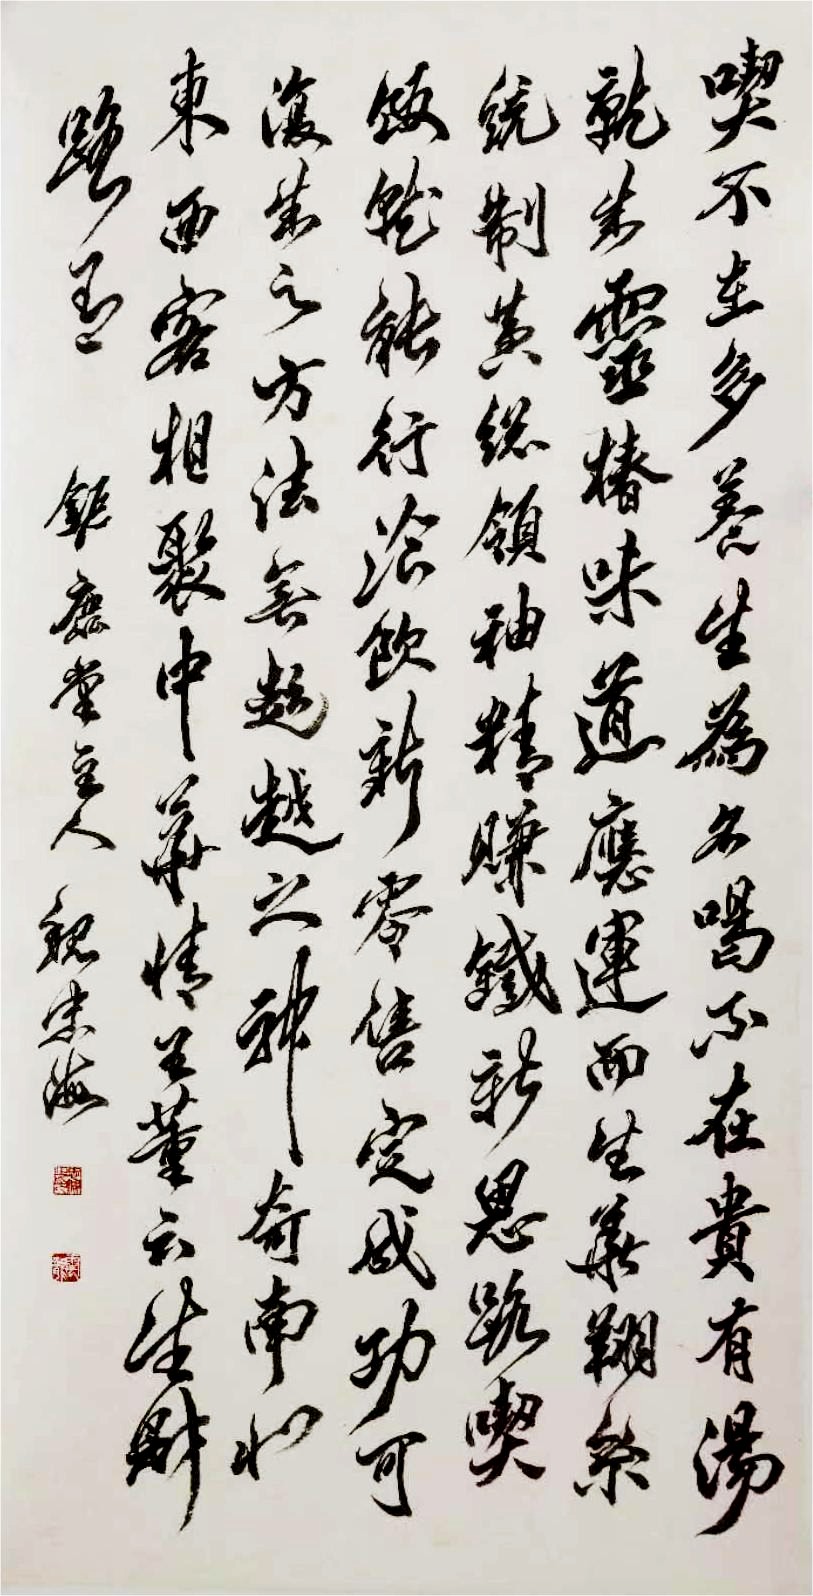 喫不在多養生為名喝不在貴有湯
靈椿味道應運而生華翔系
統制黃總領袖精賺錢新思路喫
飯就能行飲新零售定成功可
復之方法無超越之神奇南北
東西客相聚中華情呈董云生財
路 鉅鹿堂主人 魏忠海